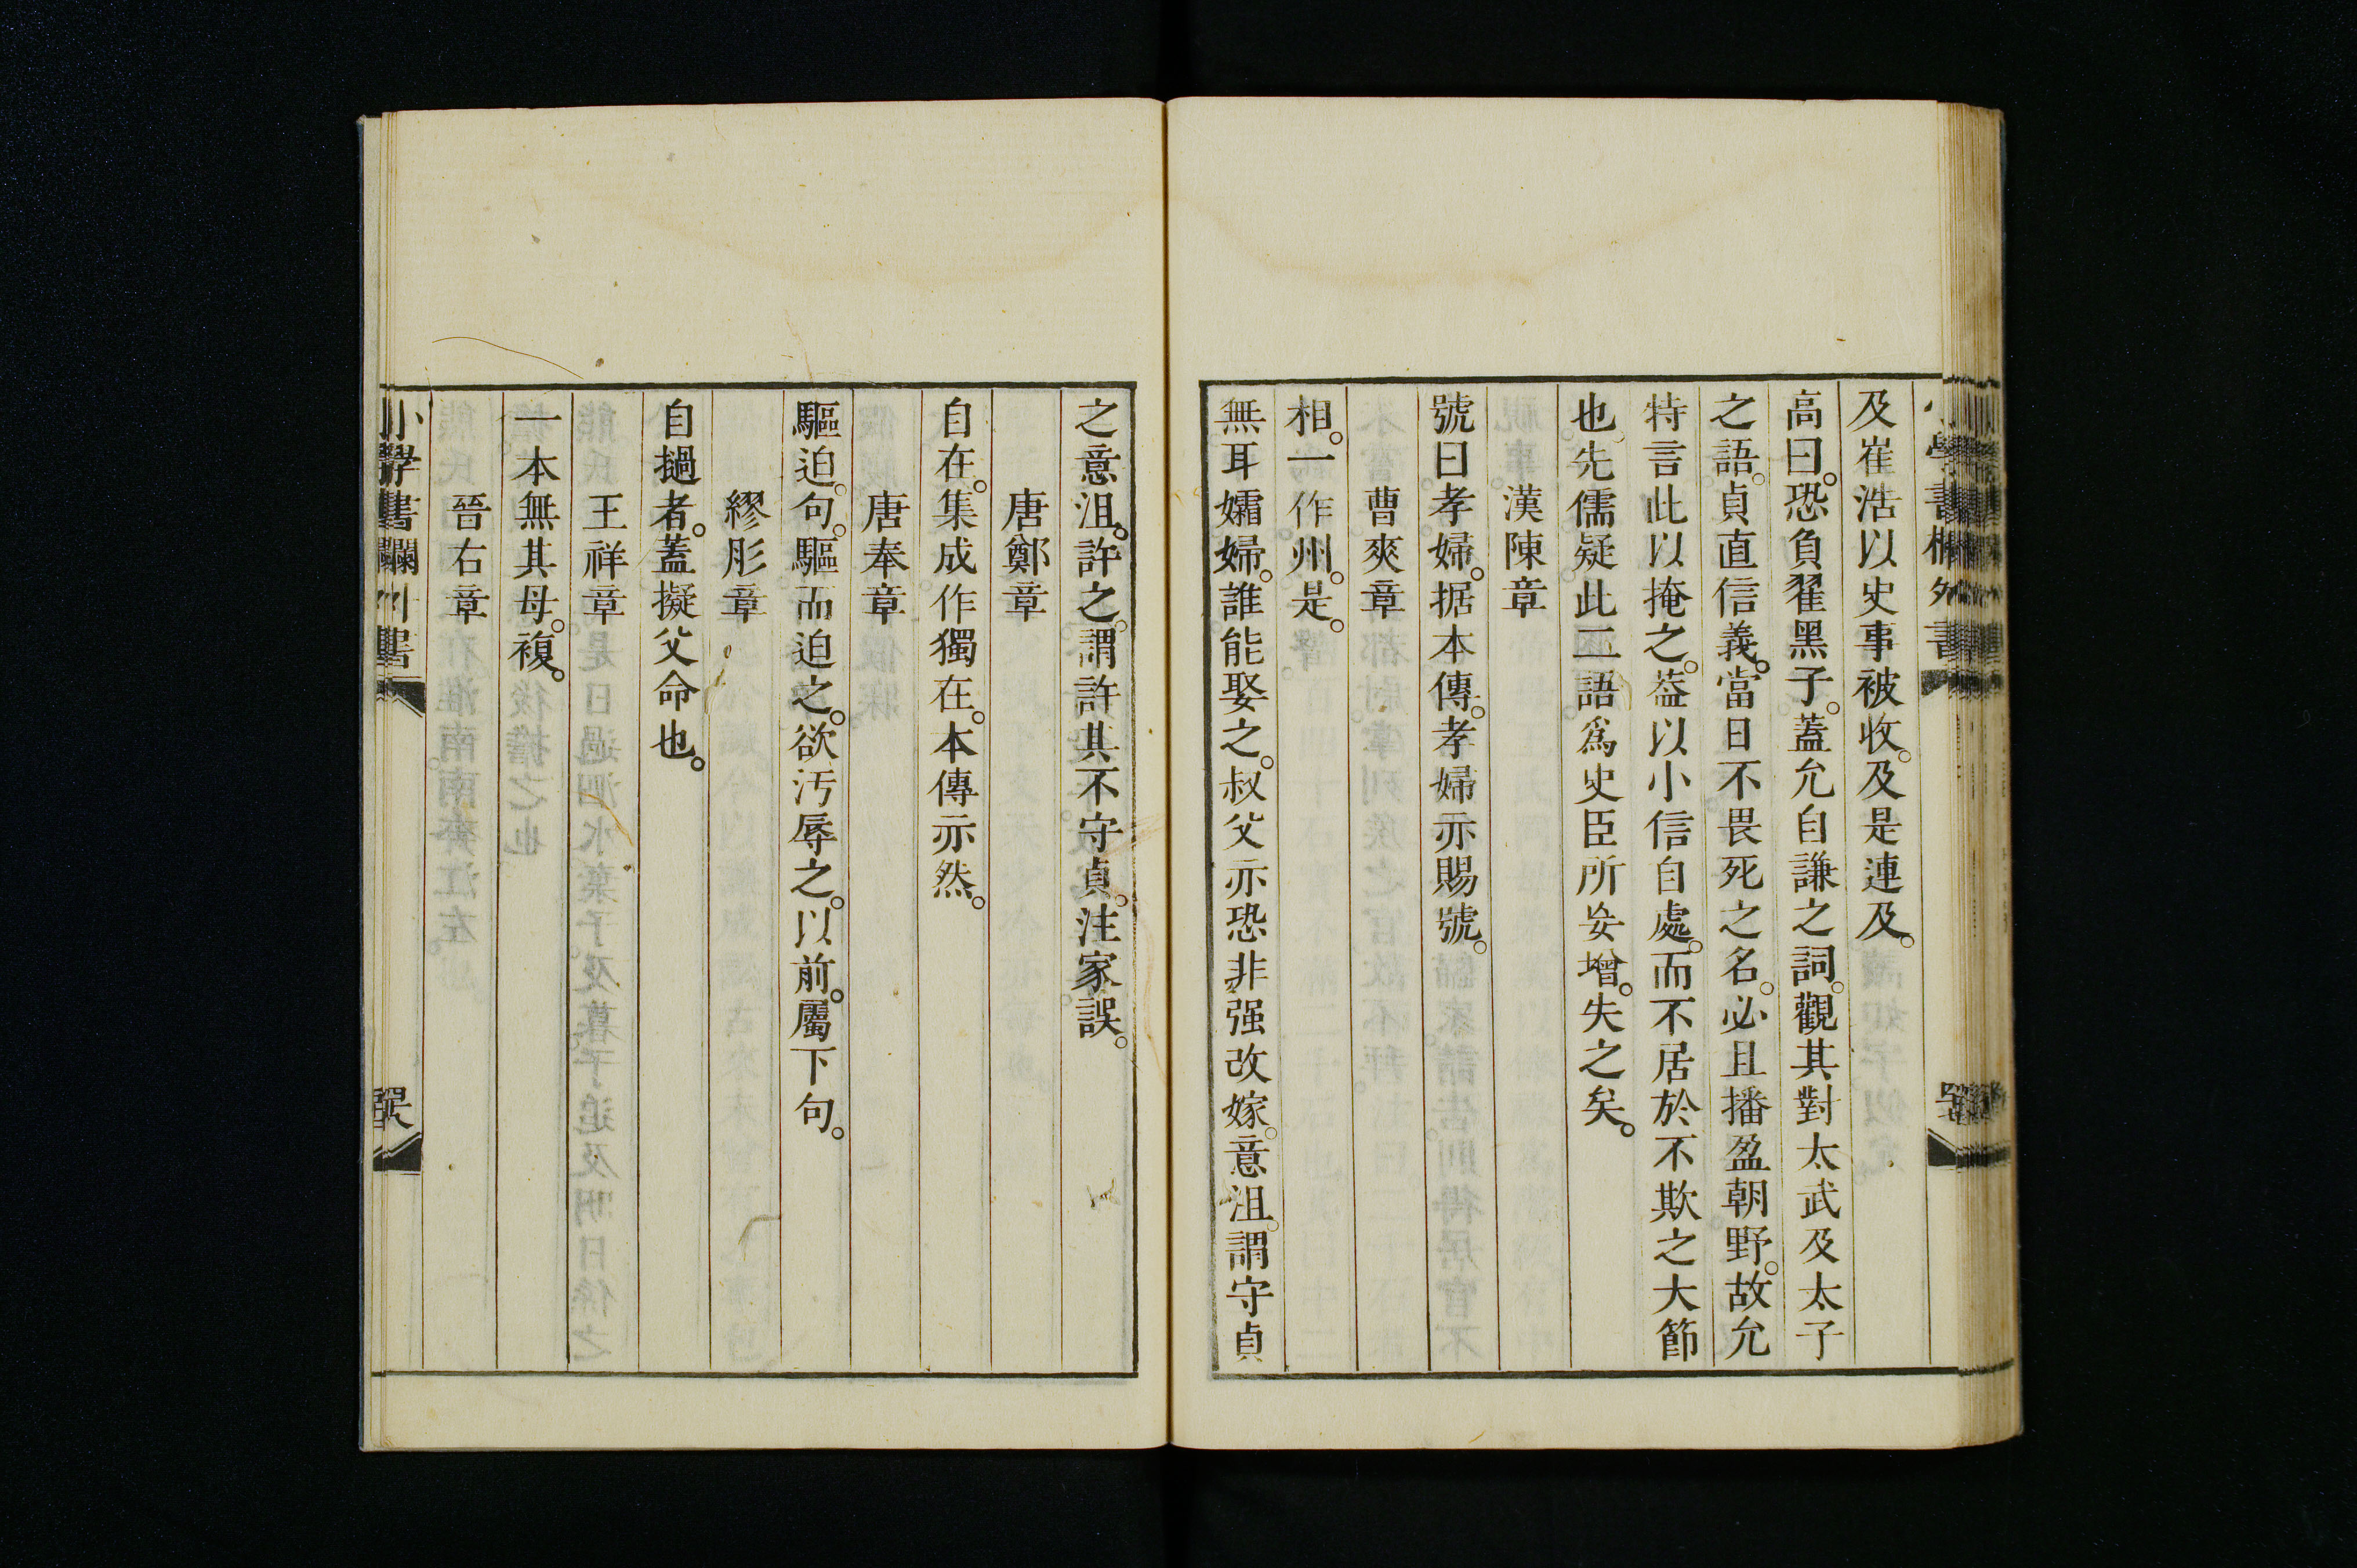 及崔浩以史事被收。及是連及。
高曰。恐負翟黑子。蓋允自謙之詞。觀其對太武及太子
之語。貞直信義。當日不畏死之名。必且播盈朝野。故允
特言此以掩之。葢以小信自處。而不居於不欺之大節
也。先儒疑此二語爲史臣所妄增。失之矣。
漢陳章
號曰孝婦。据本傳。孝婦亦賜號。
曹爽章
相。一作州。是。
無耳孀婦。誰能娶之。叔父亦恐非强改嫁。意沮。謂守貞
之意沮。許之。謂許其不守貞。注家誤。
唐鄭章
自在。集成作獨在。本傳亦然。
唐奉章
驅迫。句。驅而迫之。欲汚辱之。以前。屬下句。
繆肜章
自撾者。蓋擬父命也。
王祥章
一本無其母。複。
晉右章
小學書欄外書